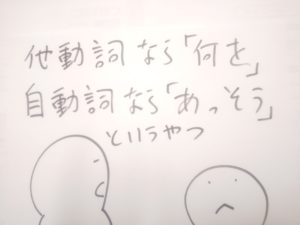 他動詞なら「何を」
自動詞なら「あっそう」
というやつ